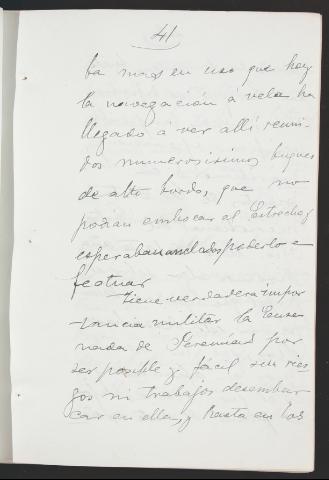 41
ba mas en uso que hoy
la navegación á vela ha
llegado á ver allí reuni-
dos numerosisimos buques
de alto bordo, que no
podian embocar al Estrecho y
esperaban anclados poderlo e
fectuar
Tiene verdadera impor
tancia militar la Ense
nada de Jeremías por
ser posible y fácil sin ries
gos ni trabajos desembar
car en ella, y hasta en los